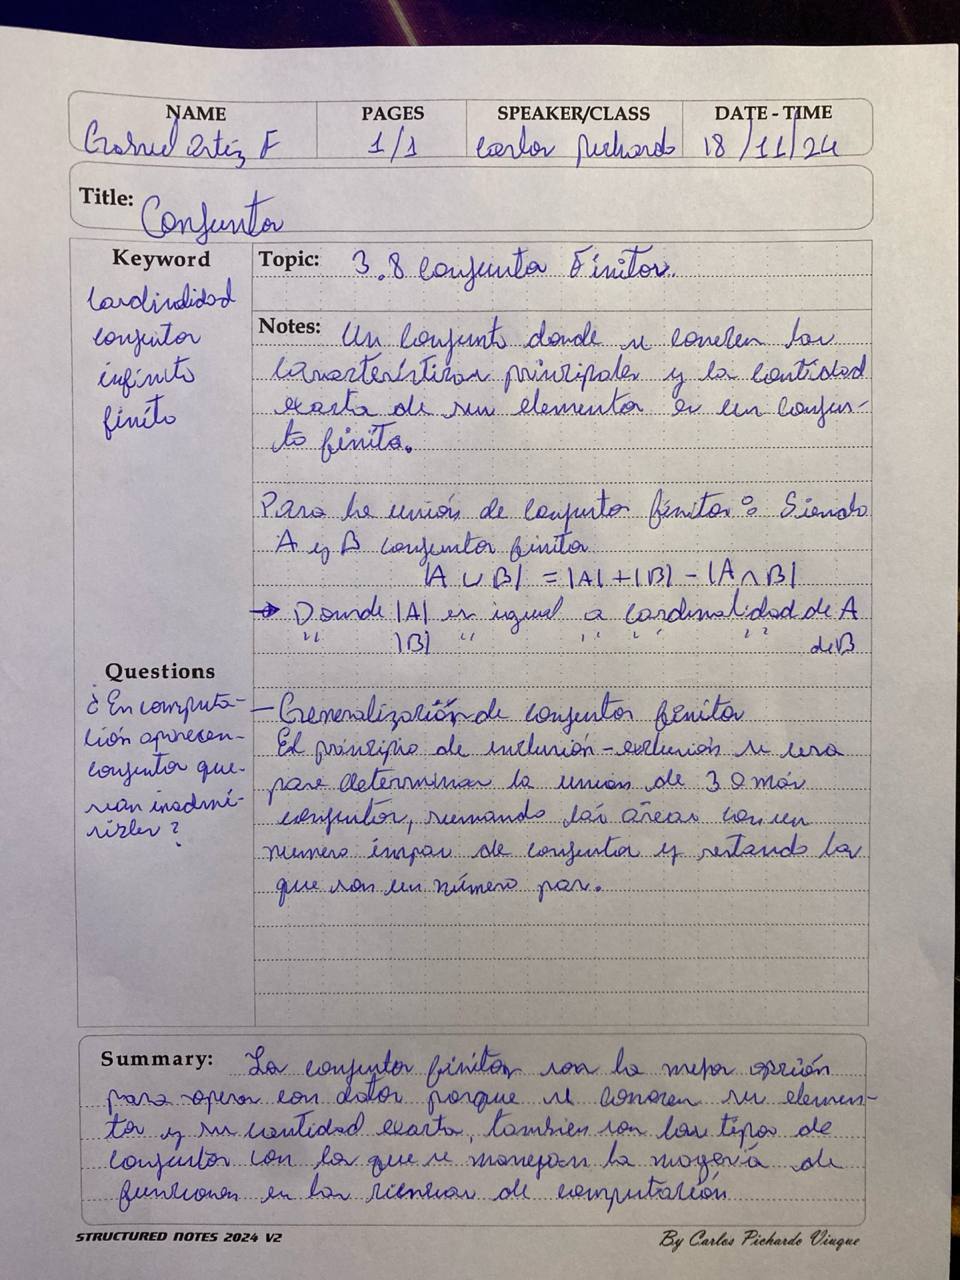 NAME PAGES SPEAKER/CLASS DATE-TIME
Gabriel Ortiz F 1/1 Carlos Pichardo 18/11/24
Title: Conjuntos
Keyword
Cardinalidad
conjuntos
infinito
finito
Topic: 3.8 Conjuntos Finitos.
Notes: Un conjunto donde se conocen las
características principales y la cantidad
exacta de sus elementos es un conjun-
to finito.
Para la unión de conjuntos finitos: Siendo
A y B conjuntos finitos
|A ∪ B| = |A| + |B| - |A ∩ B|
→ Donde |A| es igual a cardinalidad de A
" |B| " " " " de B
Questions
¿En computa-
ción aparecen
conjuntos que
sean inadmi-
sibles?
— Generalización de conjuntos finitos
El principio de inclusión-exclusión se usa
para determinar la unión de 3 o más
conjuntos, sumando las áreas con un
numero impar de conjuntos y restando las
que son un número par.
Summary: Los conjuntos finitos son la mejor opción
para operar con datos porque se conocen su elemen-
tos y su cantidad exacta, tambien son los tipos de
conjuntos con los que se manejan la mayoría de
funciones en las ciencias de computación
STRUCTURED NOTES 2024 V2
By Carlos Pichardo Viuque